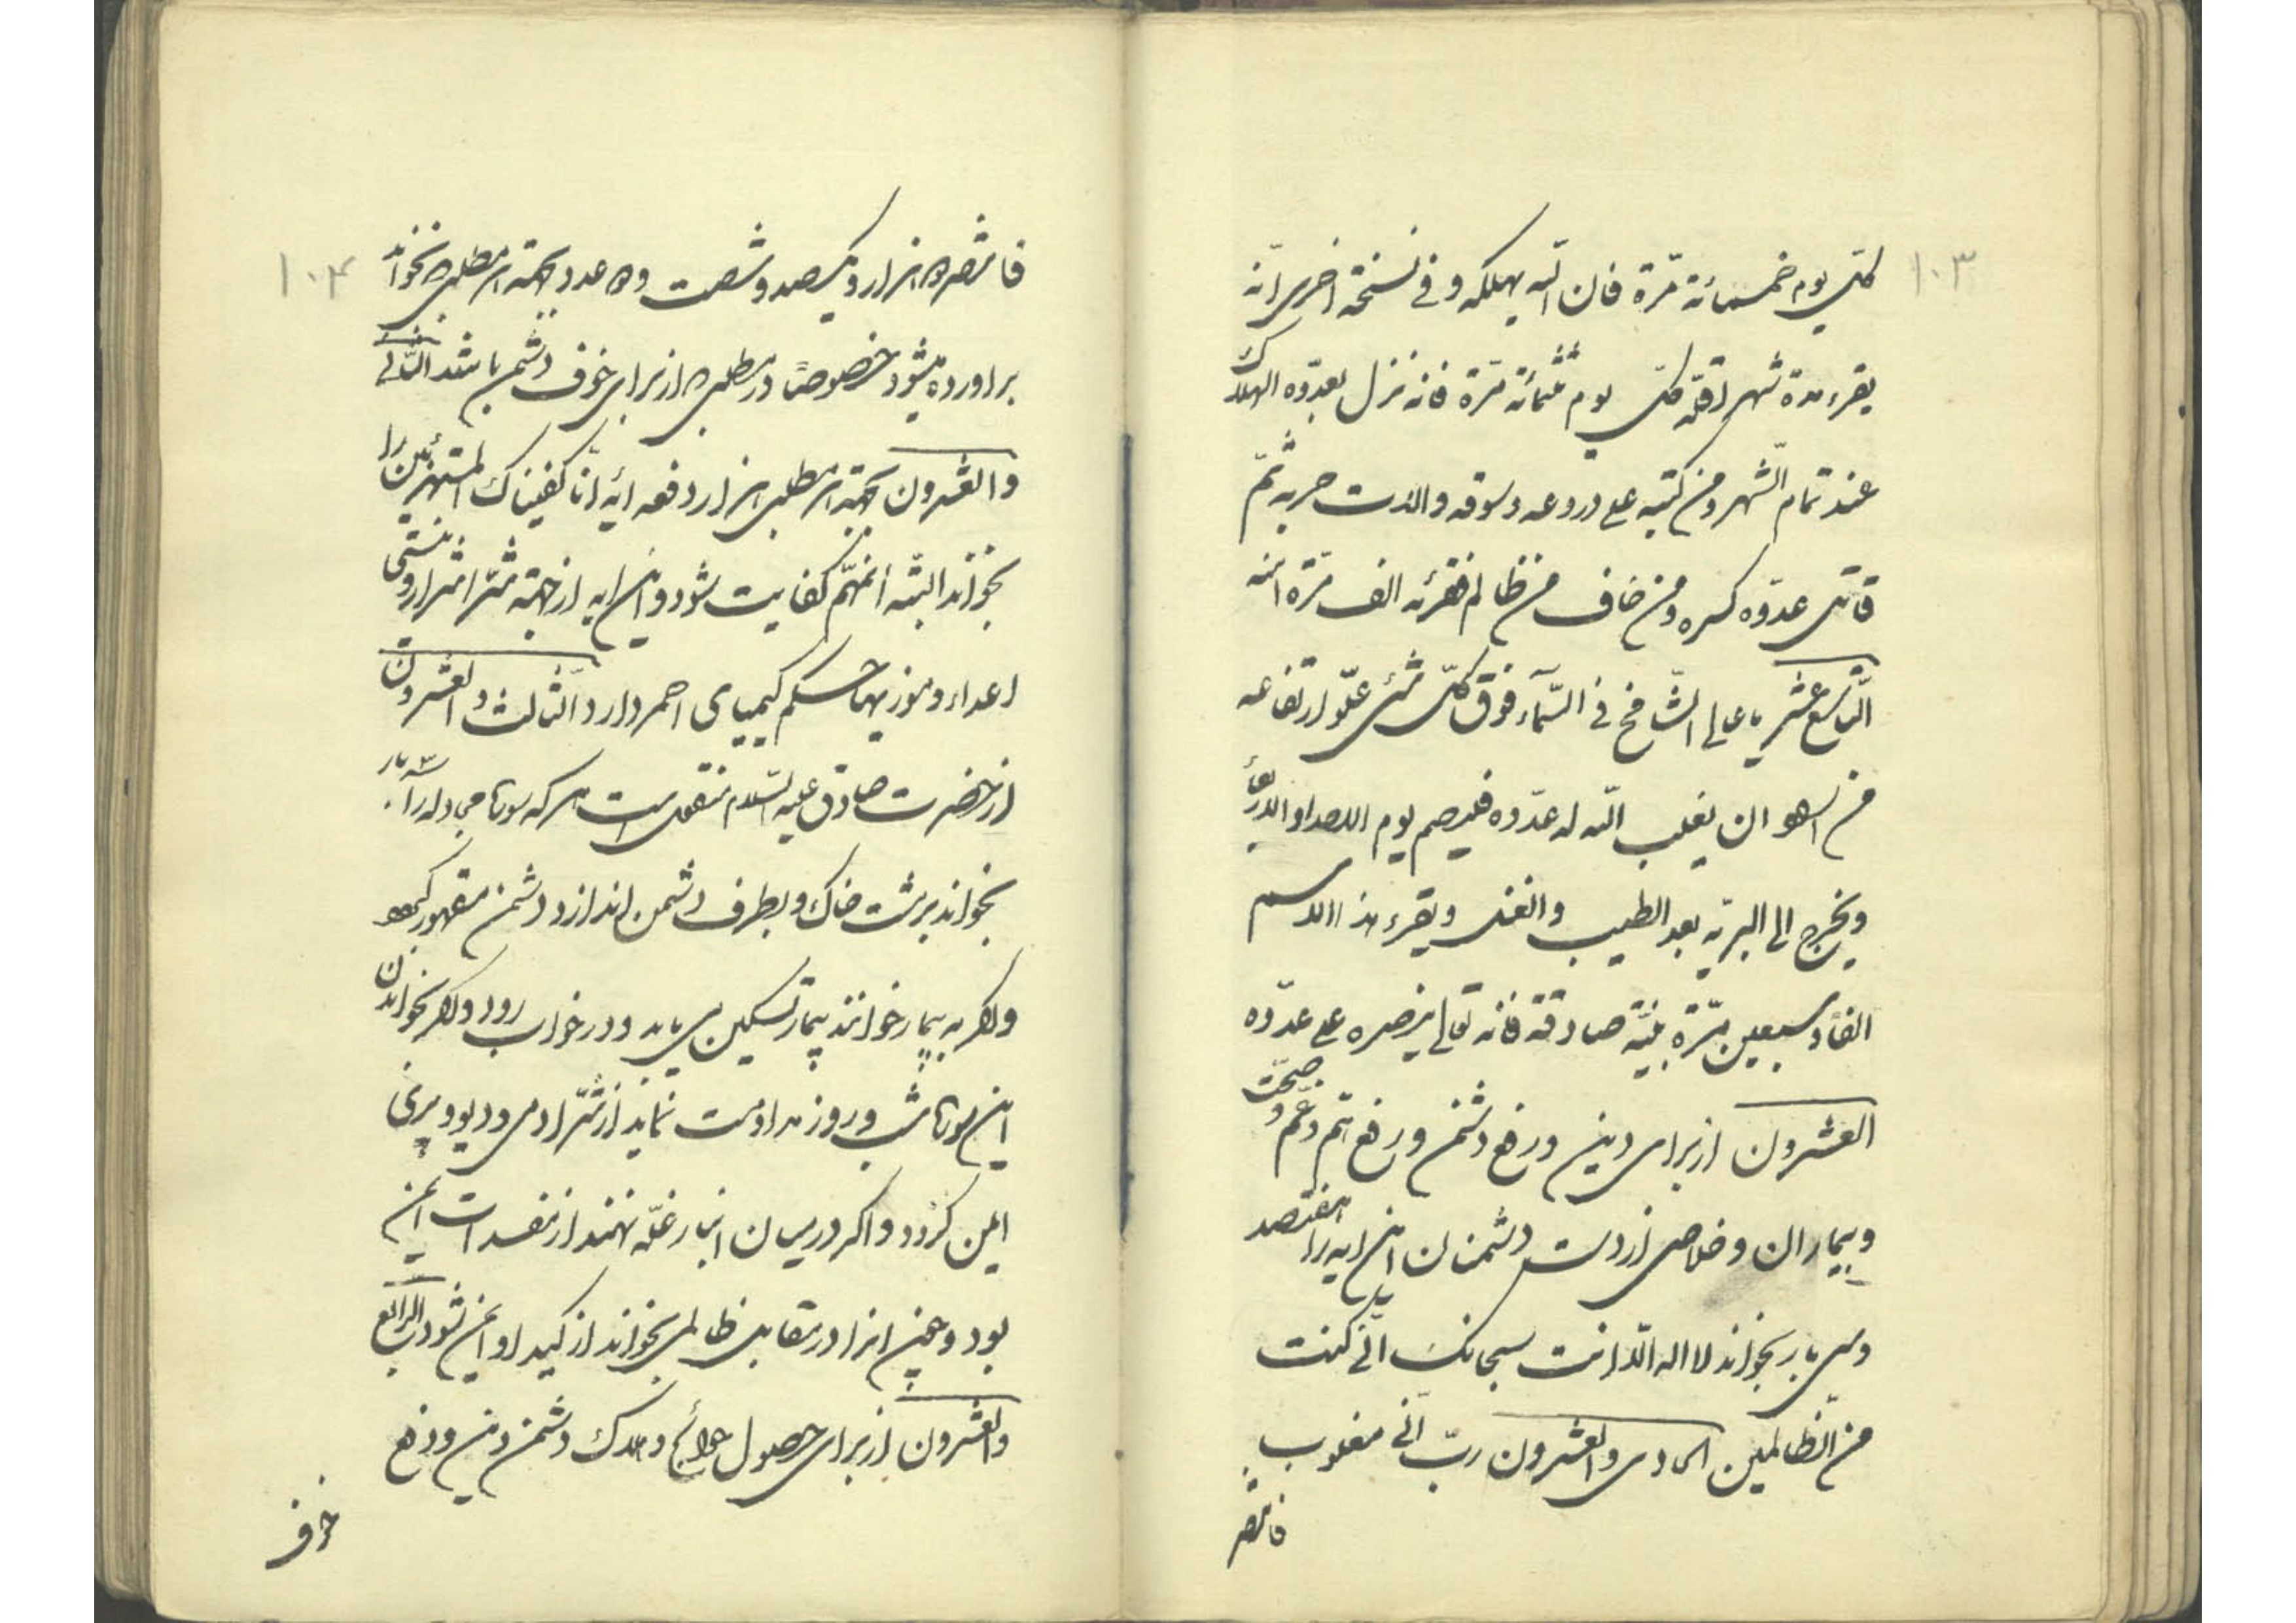 ۱۰۳
كلّ يوم خمسمائة مرّة فان اللّه يهلكه و فی نسخة اخری انّه
يقرء مدة شهر ثقة كلّ يوم ثلثمائة مرّة فانه نزل بعدّوه الهلاك
عند تمام الشّهر و من كتبه علی دروعه و سوقه و الات حربه ثمّ
قاتل عدّوه كسره و من خاف من ظالم فقرئه الف مرّة امنه
التّاسع عشر يا عالی الشّامخ فی السّمآء فوق كلّ شئ علّو ارتفاعه
من اراد ان يغلب اللّه له عدّوه فليصم يوم الاحد او الاربعا
و يخرج الی البريّه بعد الطيب و الغسل و يقرء هذا الاسم
الفاً و سبعين مرّة بنيّة صادقة فانّه تعالی ينصره علی عدّوه
العشرون از برای دين و رفع دشمن و رفع همّ و غمّ و صحّت
و بيماران و خلاصی از دست دشمنان اين ايه را هفتصد
و سی بار بخواند لا اله الّا انت سبحانك انّی كنت
من الظّالمين الحادی و العشرون ربّ انّی مغلوب
فانتصر
۱۰۴
فانتصر هزار و يكصد و شصت و عدد بجهة هر مطلبی بخواند
براورده ميشود خصوصاً در مطلبی كه از برای خوف دشمن باشد الثّانی
و العشرون بجهة هر مطلبی هزار دفعه ايه انّا كفيناك المستهزئين را
بخواند البتّه انمهّم كفايت شود و اين ايه از جهة شرّ اشرار و نيستی
اعداء و موذيها حكم كيميای احمر دارد الثّالث و العشرون
از حضرت صادق عليه السّلام منقول است هر كه سوره مجادله را ۳ بار
بخواند بر مشت خاك و بطرف دشمن اندازد دشمن مقهور گردد
و اگر به بيمار خوانند بيمار تسكين يابد و در خواب رود و اگر بخواندن
اين سوره شب و روز مداومت نمايد از شرّ ادمی و ديو و پری
ايمن گردد و اگر در ميان انبار غلّه نهند از مفسدات ايمن
بود و چون انرا در مقابل ظالمی بخواند از كيد او ايمن شود الرّابع
و العشرون از برای حصول حوائج و هلاك دشمن دين و دفع
خوف